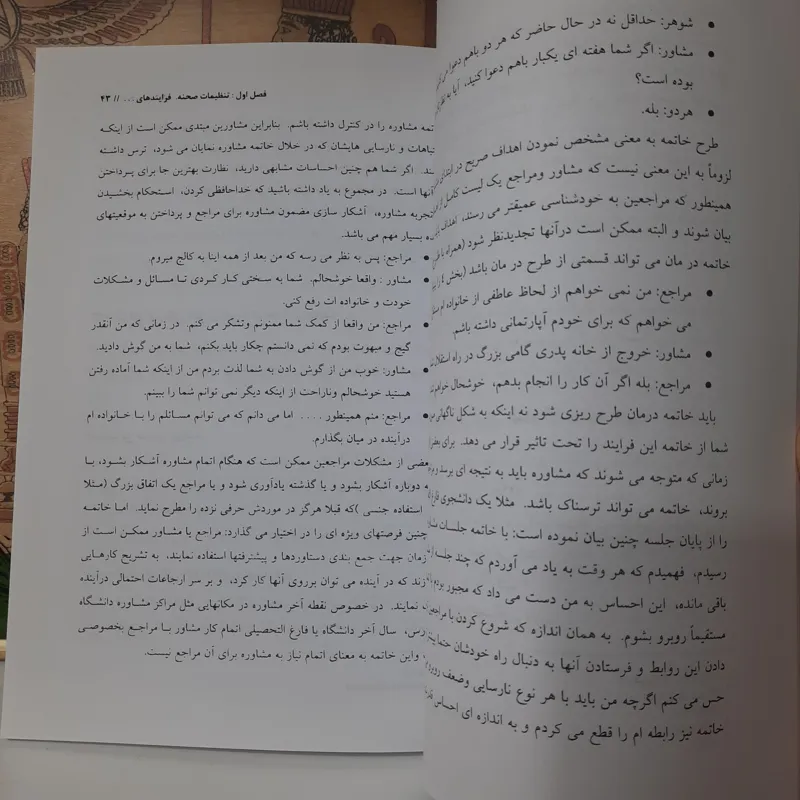 شوهر: حداقل نه در حال حاضر که هر دو باهم دعوا
مشاور: اگر شما هفته ای یکبار باهم دعوا کنید، آیا
بوده است؟
هردو: بله.
طرح خاتمه به معنی مشخص نمودن اهداف صریح در ابتدای
لزوماً به این معنی نیست که مشاور ومراجع یک لیست کامل از
همینطور که مراجعین به خودشناسی عمیقتر می رسند، اهداف
بیان شوند و البته ممکن است درآنها تجدیدنظر شود (همراه با
خاتمه در مان می تواند قسمتی از طرح در مان باشد (بخش
مراجع: من نمی خواهم از لحاظ عاطفی از خانواده ام
می خواهم که برای خودم آپارتمانی داشته باشم.
مشاور: خروج از خانه پدری گامی بزرگ در راه استقلال
مراجع: بله اگر آن کار را انجام بدهم، خوشحال خواهم
باید خاتمه درمان طرح ریزی شود نه اینکه به شکل ناگهانی
شما از خاتمه این فرایند را تحت تاثیر قرار می دهد. برای
زمانی که متوجه می شوند که مشاوره باید به نتیجه ای برسد و
بروند، خاتمه می تواند ترسناک باشد. مثلا یک دانشجوی
را از پایان جلسه چنین بیان نموده است: با خاتمه جلسات
رسیدم، فهمیدم که هر وقت به یاد می آوردم که چند جلسه
باقی مانده، این احساس به من دست می داد که مجبور بودم
مستقیماً روبرو بشوم. به همان اندازه که شروع کردن با
دادن این روابط و فرستادن آنها به دنبال راه خودشان
حس می کنم اگرچه من باید با هر نوع نارسایی وضعف
خاتمه نیز رابطه ام را قطع می کردم و به اندازه ای احساس
فصل اول: تنظیمات صحنه. فرایندهای ... // ۴۳
تمه مشاوره را در کنترل داشته باشم. بنابراین مشاورین مبتدی ممکن است از اینکه
تباهات و نارسایی هایشان که در خلال خاتمه مشاوره نمایان می شود، ترس داشته
ند. اگر شما هم چنین احساسات مشابهی دارید، نظارت بهترین جا برای پرداختن
آنها است. در مجموع به یاد داشته باشید که خداحافظی کردن، استحکام بخشیدن
تجربه مشاوره، آشکار سازی مضمون مشاوره برای مراجع و پرداختن به موقعیتهای
ه بسیار مهم می باشد.
مراجع: پس به نظر می رسه که من بعد از همه اینا به کالج میروم.
مشاور: واقعا خوشحالم. شما به سختی کار کردی تا مسائل و مشکلات
خودت و خانواده ات رفع کنی.
مراجع: من واقعا از کمک شما ممنونم وتشکر می کنم. در زمانی که من آنقدر
گیج و مبهوت بودم که نمی دانستم چکار باید بکنم، شما به من گوش دادید.
مشاور: خوب من از گوش دادن به شما لذت بردم من از اینکه شما آماده رفتن
هستید خوشحالم وناراحت از اینکه دیگر نمی توانم شما را ببینم.
مراجع: منم همینطور .... اما می دانم که می توانم مسائلم را با خانواده ام
درآینده در میان بگذارم.
عضی از مشکلات مراجعین ممکن است که هنگام اتمام مشاوره آشکار بشود، یا
ه دوباره آشکار بشود و یا گذشته یادآوری شود و یا مراجع یک اتفاق بزرگ (مثلا
استفاده جنسی )که قبلا هرگز در موردش حرفی نزده را مطرح نماید. اما خاتمه
چنین فرصتهای ویژه ای را در اختیار می گذارد: مراجع یا مشاور ممکن است از
زمان جهت جمع بندی دستاوردها و پیشرفتها استفاده نمایند، به تشریح کارهایی
زند که در آینده می توان برروی آنها کار کرد، و بر سر ارجاعات احتمالی درآینده
نمایند. در خصوص نقطه آخر مشاوره در مکانهایی مثل مراکز مشاوره دانشگاه
رس، سال آخر دانشگاه یا فارغ التحصیلی اتمام کار مشاور با مراجع بخصوصی
واین خاتمه به معنای اتمام نیاز به مشاوره برای آن مراجع نیست.